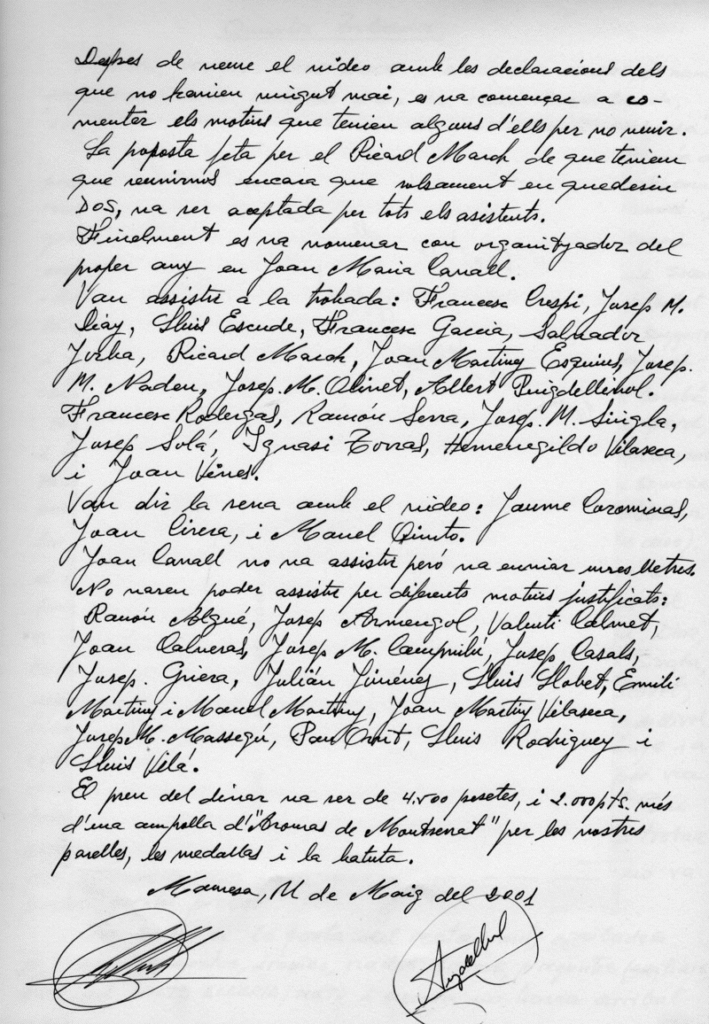 Despres de veure el video amb les declaracions dels
que no havien vingut mai, es va començar a co-
mentar els motius que tenien alguns d'ells per no venir.
La proposta feta per el Ricard March de que teniem
que reunirnos encara que solsament en quedesin
DOS, va ser aceptada per tots els asistents.
Finalment es va nomenar con organitzador del
proper any en Joan Maria Canall.
Van assistir a la trobada: Francesc Crespi, Josep M.
Diaz, Lluis Escude, Francesc Garcia, Salvador
Jorba, Ricard March, Joan Martinez Esquius, Josep.
M. Nadeu, Josep. M. Olivet, Albert Puigdellivol.
Francesc Rodergas, Ramón Serra, Josep. M. Singla,
Josep Solá, Ignasi Torras, Hemenegildo Vilaseca,
i Joan Vines.
Van dir la seva amb el video: Jaume Corominas,
Joan Cirera, i Manel Quinto.
Joan Canall no va assistir peró va enviar unes lletres.
No varen poder assistir per diferents motius justificats:
Ramón Algué, Josep Armengol, Valenti Calmet,
Joan Calveras, Josep M. Campmilà, Josep Casals,
Josep. Griera, Julián Jiménez, Lluis Llobet, Emili
Martinez i Manel Martinez, Joan Martinez Vilaseca,
Josep M. Massegú, Pau Orrit, Lluis Rodriguez i
Lluis Vilá.
El preu del dinar va ser de 4.500 pesetes, i 2.000 pts. més
d'una ampolla d'"Aromas de Montserrat" per les nostres
parelles, les medalles i la batuta.
Manresa, de Maig del 2001